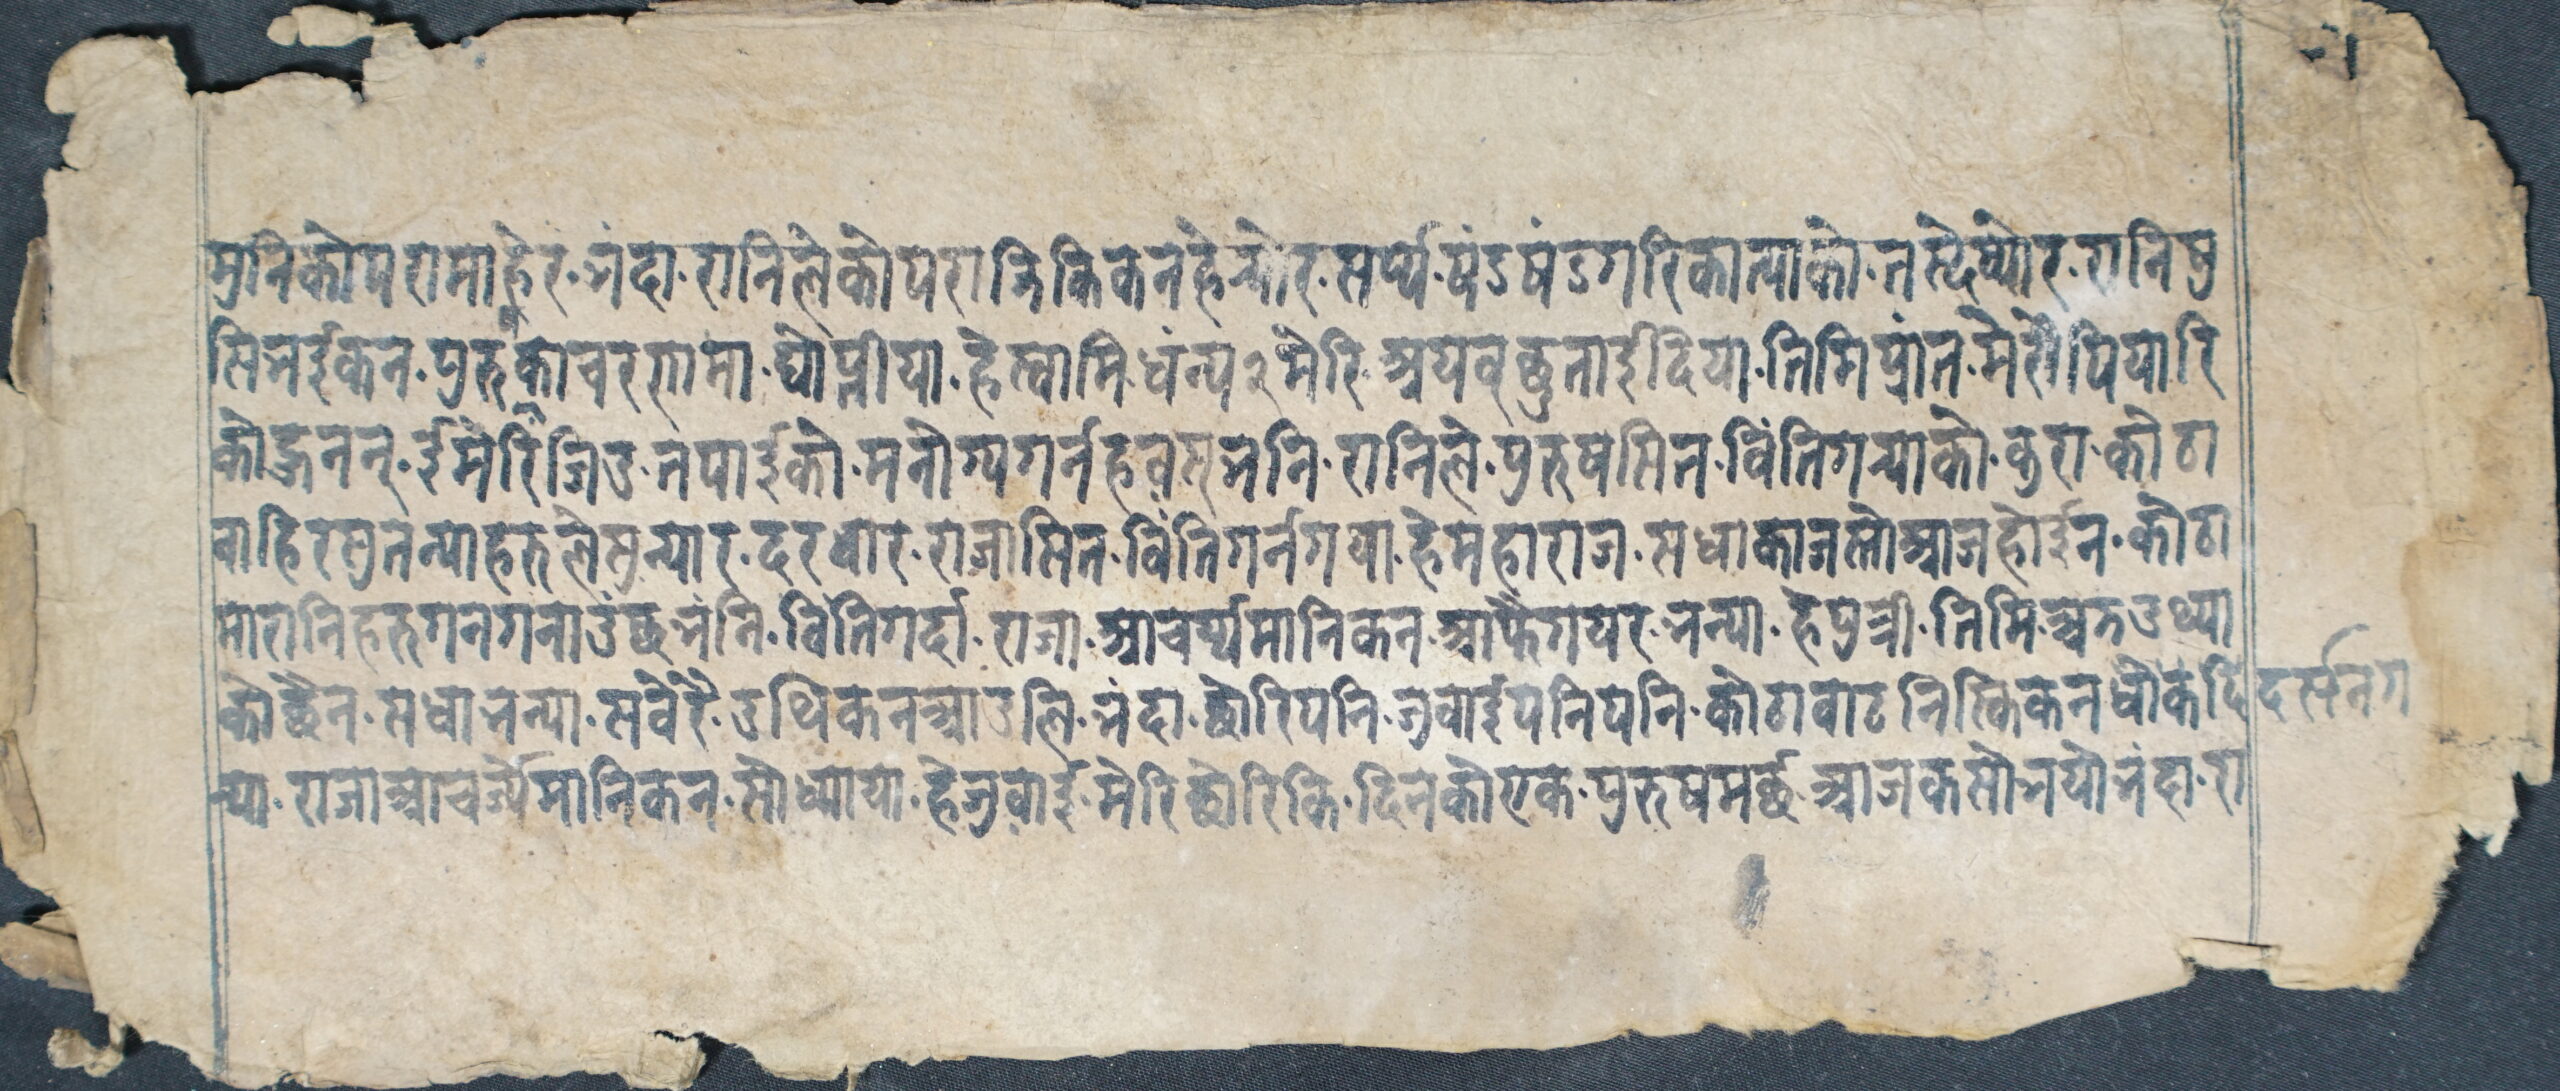 मुनिकोपरामाहेर·भंदा·रानिलेकोपराभित्रिकनहेऱ्योर·सर्प्प·षंडषंडगरिकात्याको·तस्देष्योर·रानिषु
सिभईकन·पुरुषकाचरणमा·घोप्टीया·हेस्वामि·धंन्य२मेरि·अयवछुताईदिया·तिमिप्रांन·मेरोपियारि
कोहुननन्·ईमेरिजिउ·नपाईको·मनोग्यगर्नहवस्भनि·रानिले·पुरुषसित·विंतिगऱ्याको·कुरा·कोठा
बाहिरसुतन्याहरुलेसुन्यार·दरवार·राजासित·विंतिगर्नगया·हेमहाराज·सधाकाजस्तोआजहोईन·कोठा
मारानिहरुगनगनाउंछभंनि·विंतिगर्दा·राजा·आचर्य्यमानिकन·आफैगयर·भन्या·हेपुत्री·तिमि·अरुउथ्या
कोछैन·सधाभन्या·सवेरै·उथिकनआउलि·भंदा·छोरिपनि·जुवाईपनिपनि·कोठावाटनिस्किकनधोकदि दर्सनग
ऱ्या·राजाआचर्ज्येमानिकन·सोध्याया·हेजुवाई·मेरिछोरिकि·दिनकोएक·पुरुषमर्छ·आजकसोभयोभंदा·रा